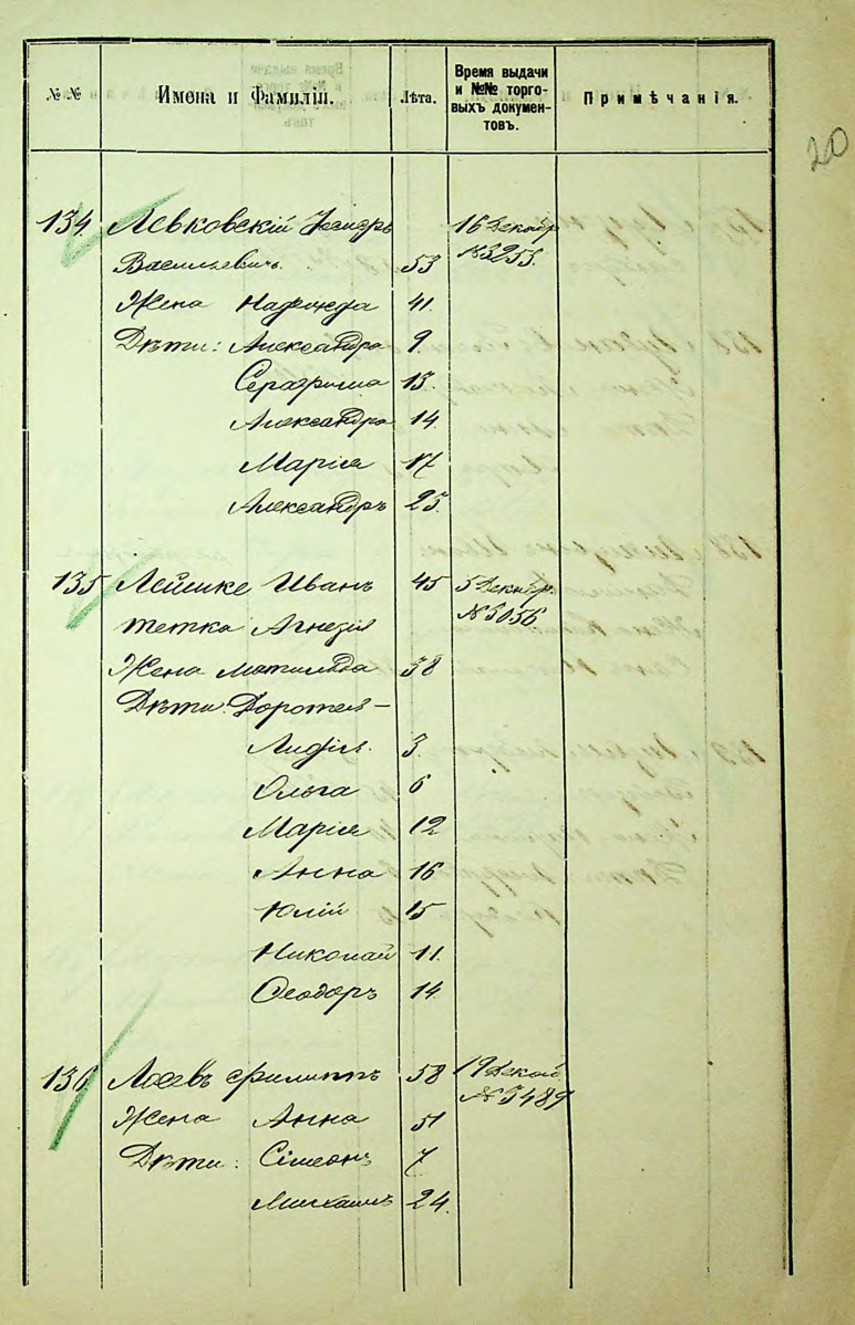 20
№№ Имена и Фамиліи. Лѣта. Время выдачи и №№ торговыхъ документовъ. Примѣчанія.
134 Левковскій 16 Декабр
Васильевичъ. 53 №3253.
Жена Надежда 41.
Дѣти: Александра 9.
Серафима 13.
Александра 14.
Марія 17
Александръ 25.
135 Лейшке Иванъ 45 5 Декабр.
тетка Агнезія №3056.
Жена Матильда 38
Дѣти: Доротея —
Лидія. 3.
Ольга 6
Марія 12
Анна 16
Юлій 15
Николай 11.
Ѳеодоръ 14.
136 Лосевъ Филиппъ 58 19 Декаб
Жена Анна 51 №3489
Дѣти: Сімеонъ 7
Михаилъ 24.